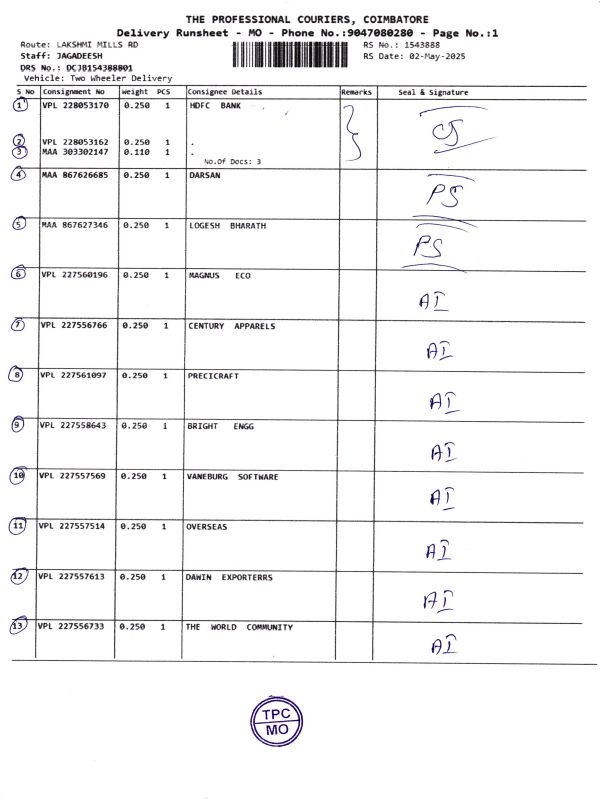 THE PROFESSIONAL COURIERS, COIMBATORE
Delivery Runsheet - MO - Phone No.:9047080280 - Page No.:1
Route: LAKSHMI MILLS RD RS No.: 1543888
Staff: JAGADEESH RS Date: 02-May-2025
DRS No.: DCJB154388801
Vehicle: Two Wheeler Delivery
S No Consignment No Weight PCS Consignee Details Remarks Seal & Signature
1 VPL 228053170 0.250 1 HDFC BANK
2 VPL 228053162 0.250 1 .
3 MAA 303302147 0.110 1 .
No.Of Docs: 3
4 MAA 867626685 0.250 1 DARSAN PS
5 MAA 867627346 0.250 1 LOGESH BHARATH PS
6 VPL 227560196 0.250 1 MAGNUS ECO AI
7 VPL 227556766 0.250 1 CENTURY APPARELS AI
8 VPL 227561097 0.250 1 PRECICRAFT AI
9 VPL 227558643 0.250 1 BRIGHT ENGG AI
10 VPL 227557569 0.250 1 VANEBURG SOFTWARE AI
11 VPL 227557514 0.250 1 OVERSEAS AI
12 VPL 227557613 0.250 1 DAWIN EXPORTERRS AI
13 VPL 227556733 0.250 1 THE WORLD COMMUNITY AI
TPC
MO